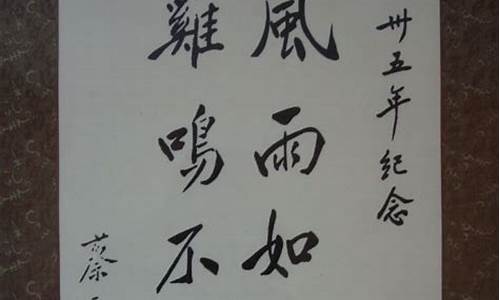 卅五年纪念
風雨如
雞鳴不
蔡